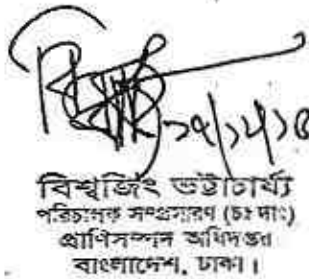 ১৭/১২/১৫
বিশ্বজিৎ ভট্টাচার্য্য
পরিচালক সম্প্রসারণ (চঃ দাঃ)
প্রাণিসম্পদ অধিদপ্তর
বাংলাদেশ, ঢাকা।